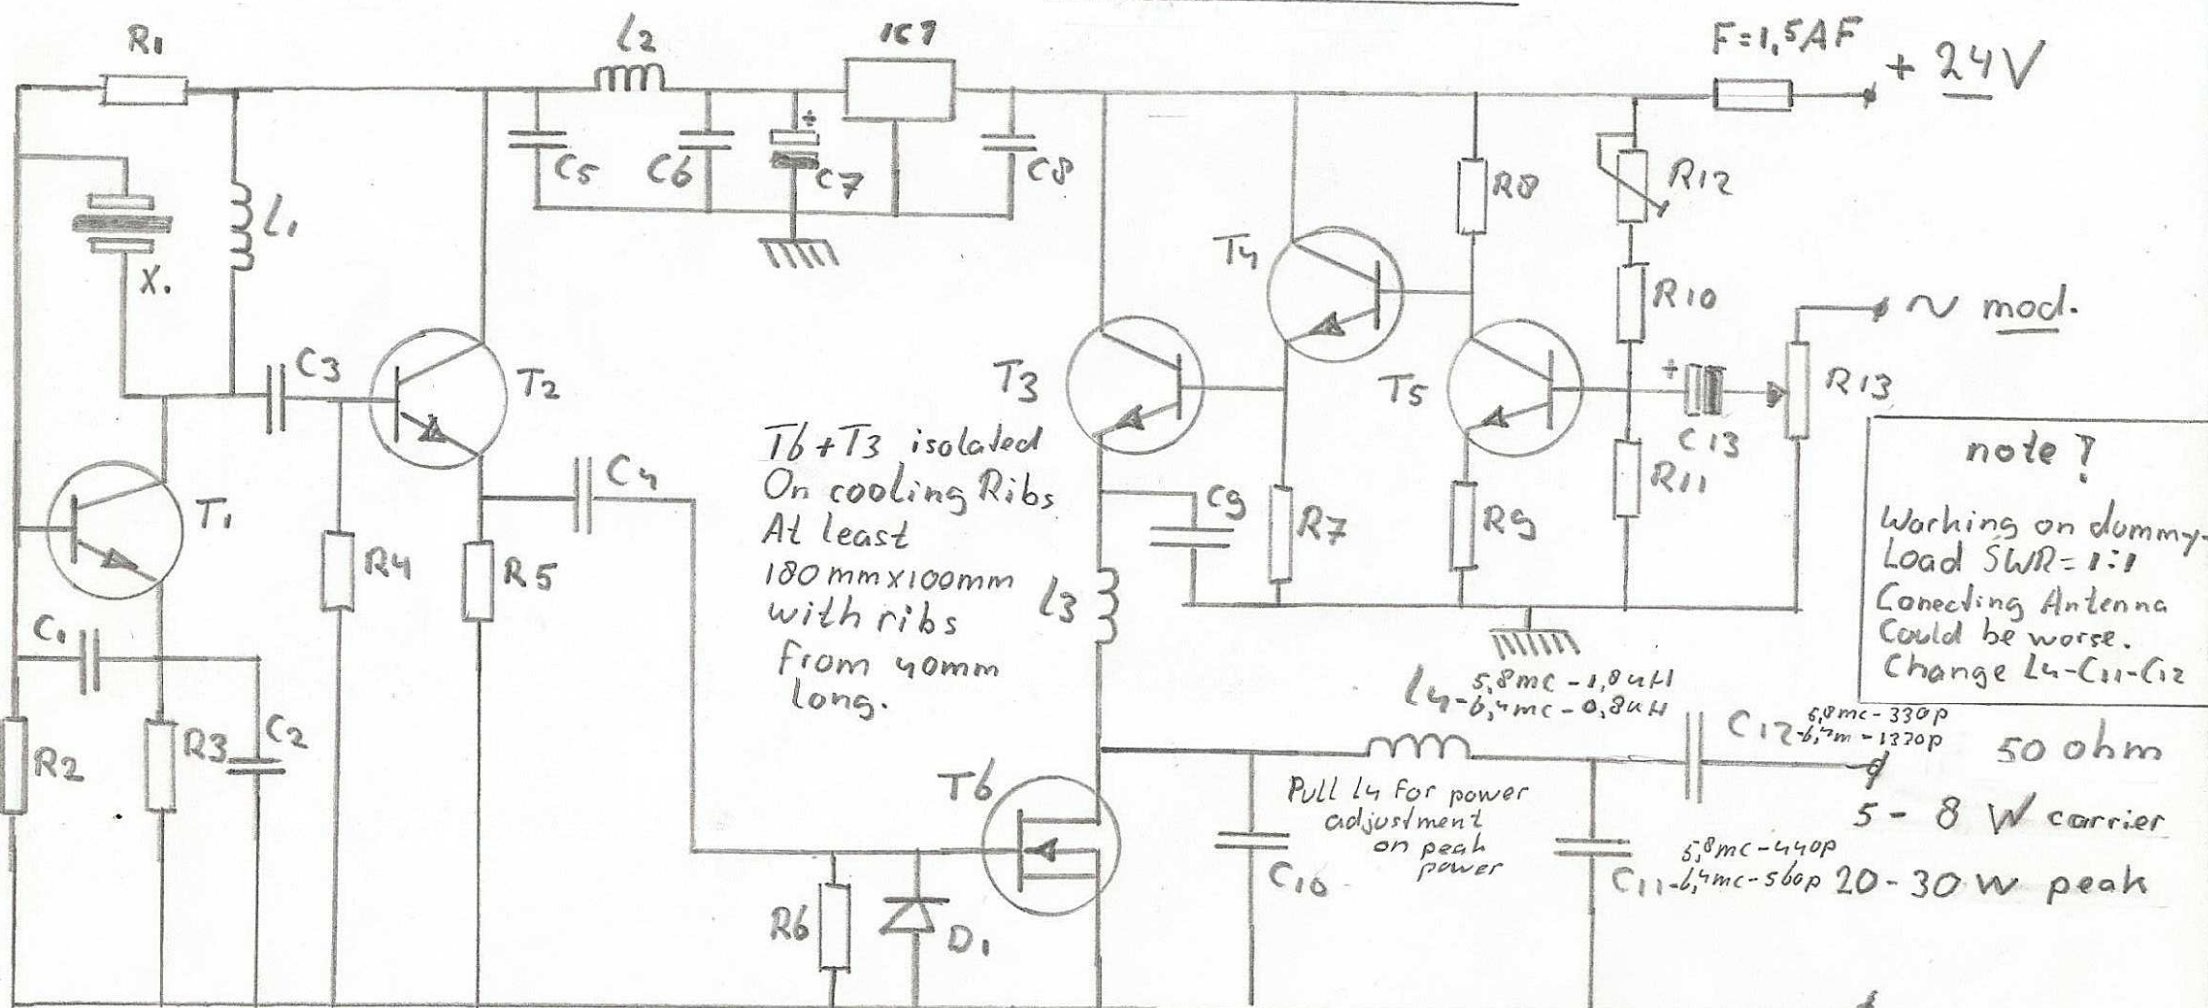 R1
L2
IC1
F=1,5AF
+ 24V
C5
C6
+
C7
C8
R8
R12
L1
X.
T4
R10
~ mod.
C3
T2
T3
T5
+
C13
R13
T6+T3 isolated
On cooling Ribs
At least
180mmx100mm
with ribs
From 40mm
long.
note !
Working on dummy-
Load SWR=1:1
Conecting Antenna
Could be worse.
Change L4-C11-C12
T1
R4
R5
C4
C9
R7
R9
R11
L3
C1
R2
R3
C2
L4-5,8mc-1,8uH
6,4mc-0,8uH
C12-5,8mc-330p
6,4m-1320p
50 ohm
T6
Pull L4 For power
adjustment
on peak
power
5-8 W carrier
C10
C11-5,8mc-440p
6,4mc-560p
20-30 W peak
R6
D1